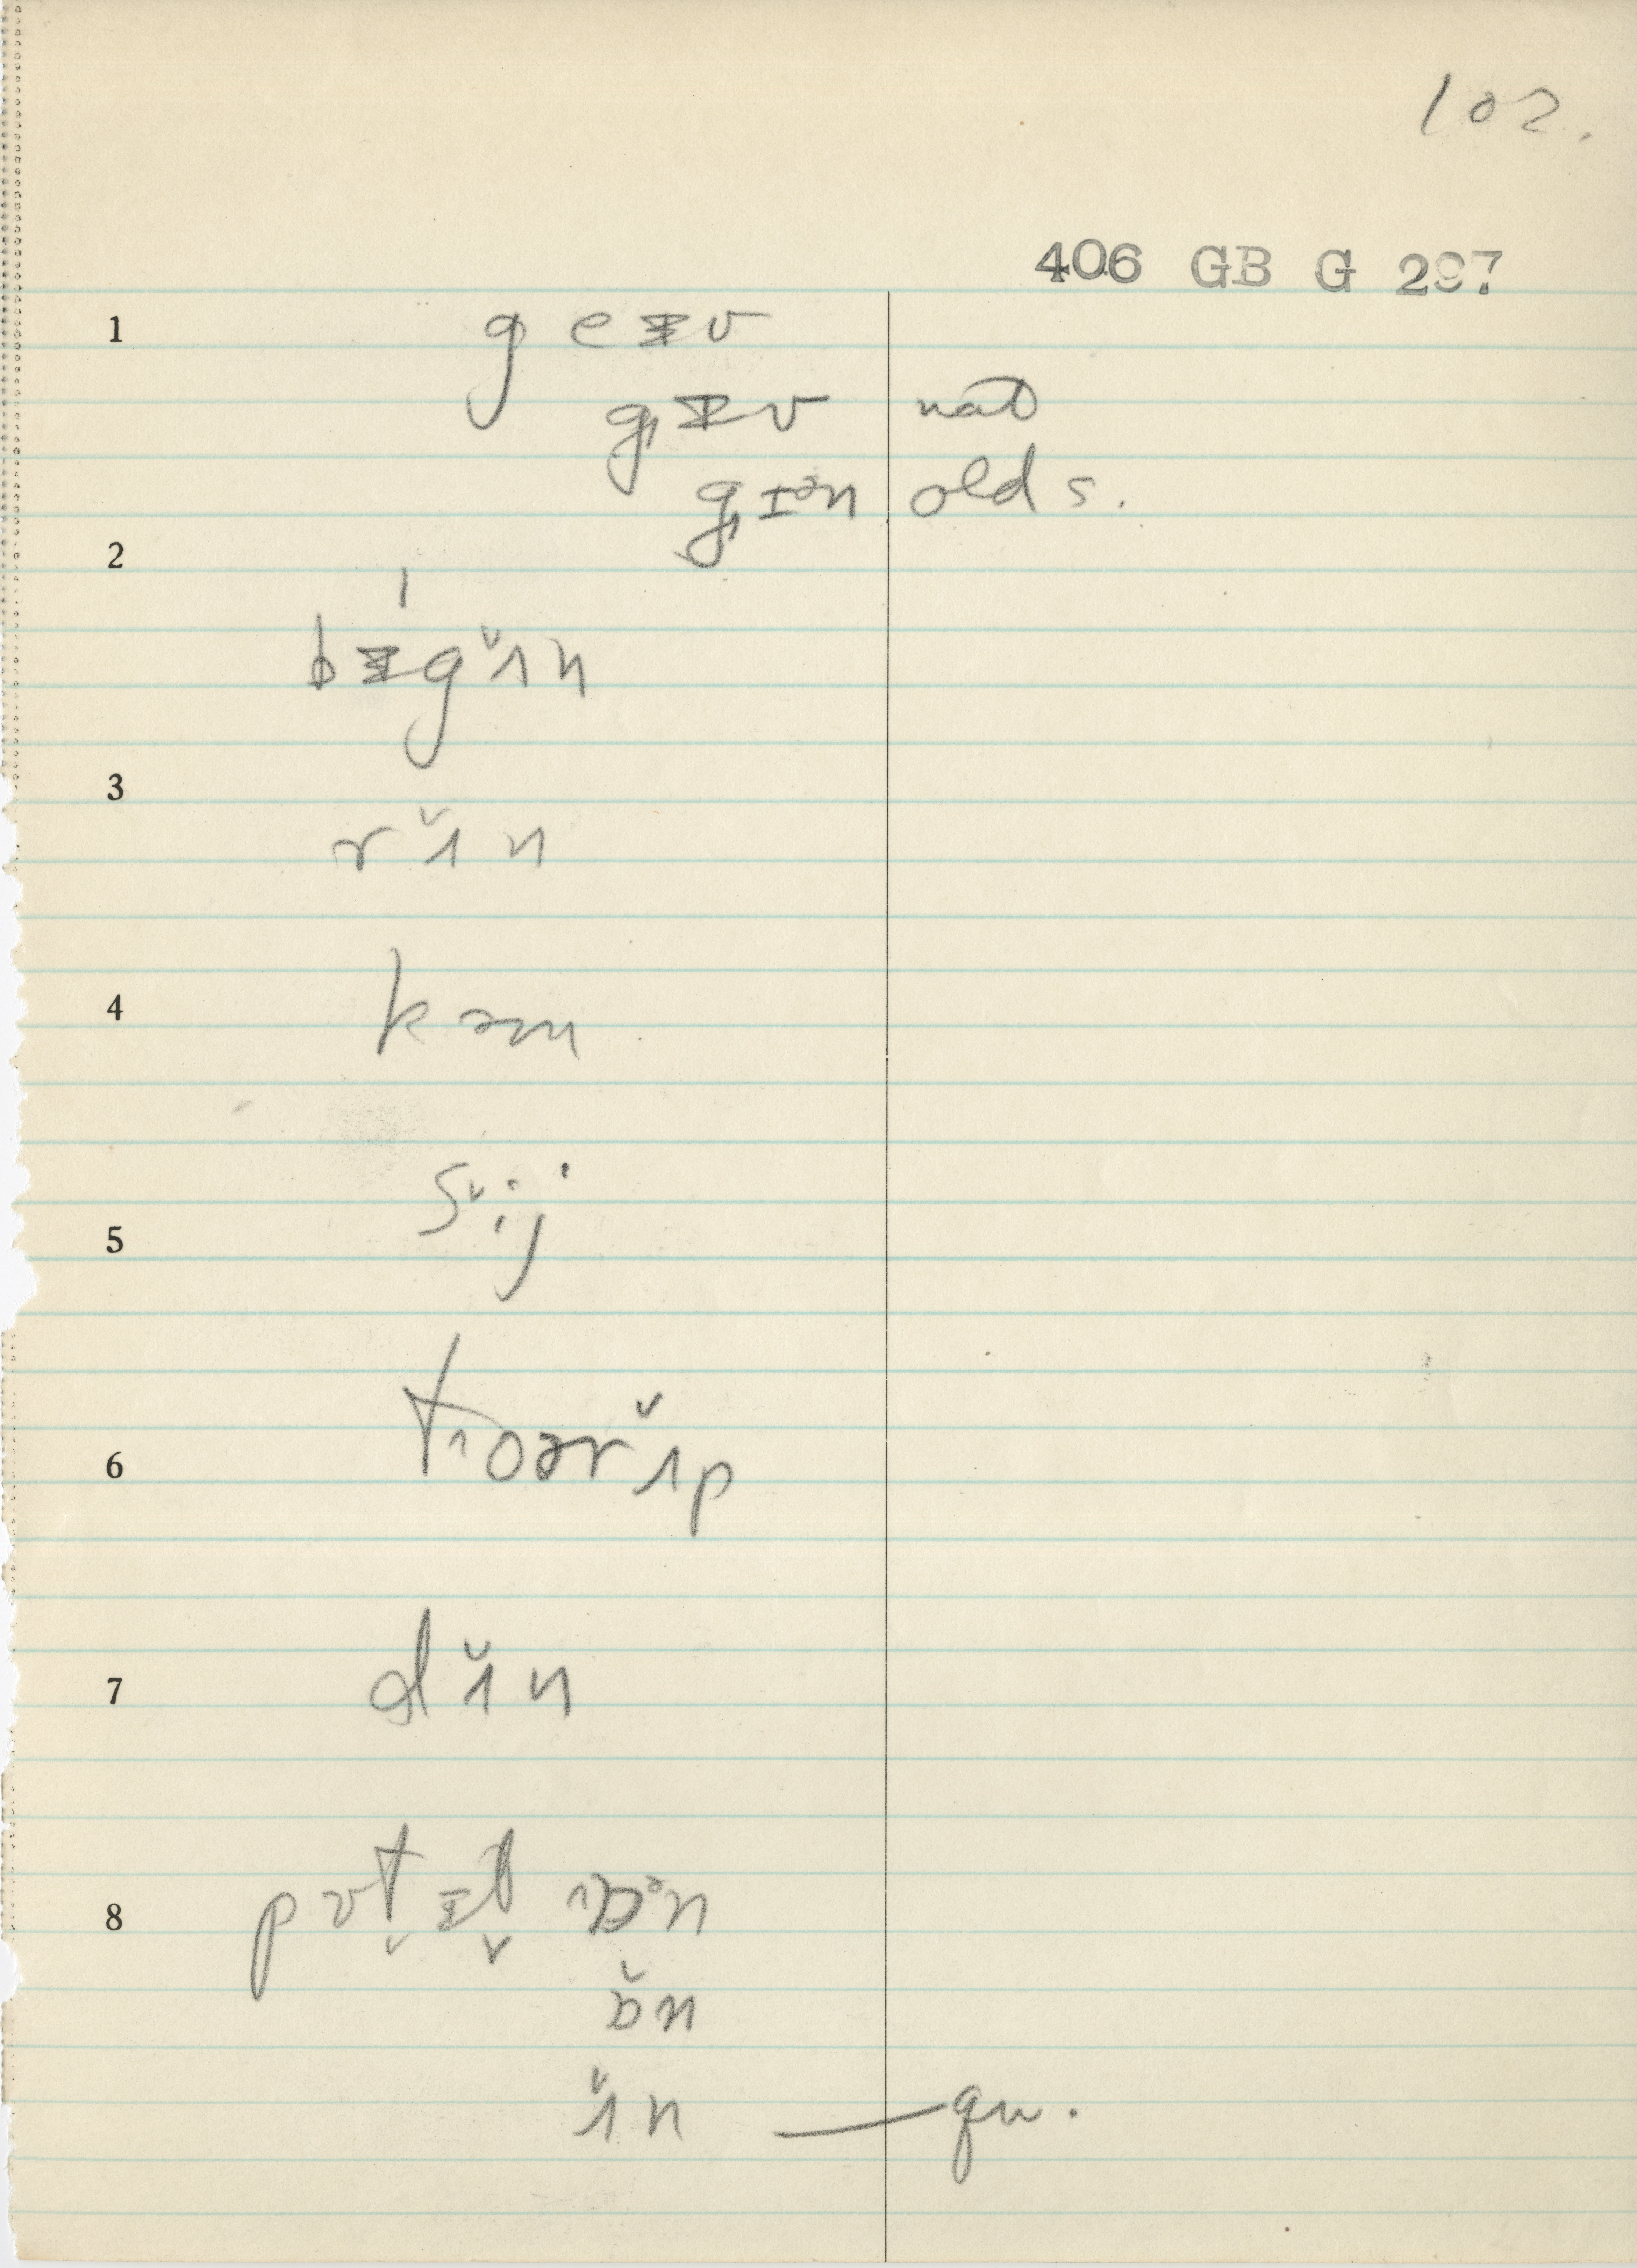 102.
406 GB G 297
1
g e ᵻ v
g˖ᵻv nat
g˖ɪᵊn old s.
2
ˈ
bᵻgɪ̆n
3
rɪ̆n
4
kəm
5
sᵛij
6
t˖oərɪ̆p
7
dɪ̆n
8
ɒ̆n
ɪ̆n — qu.